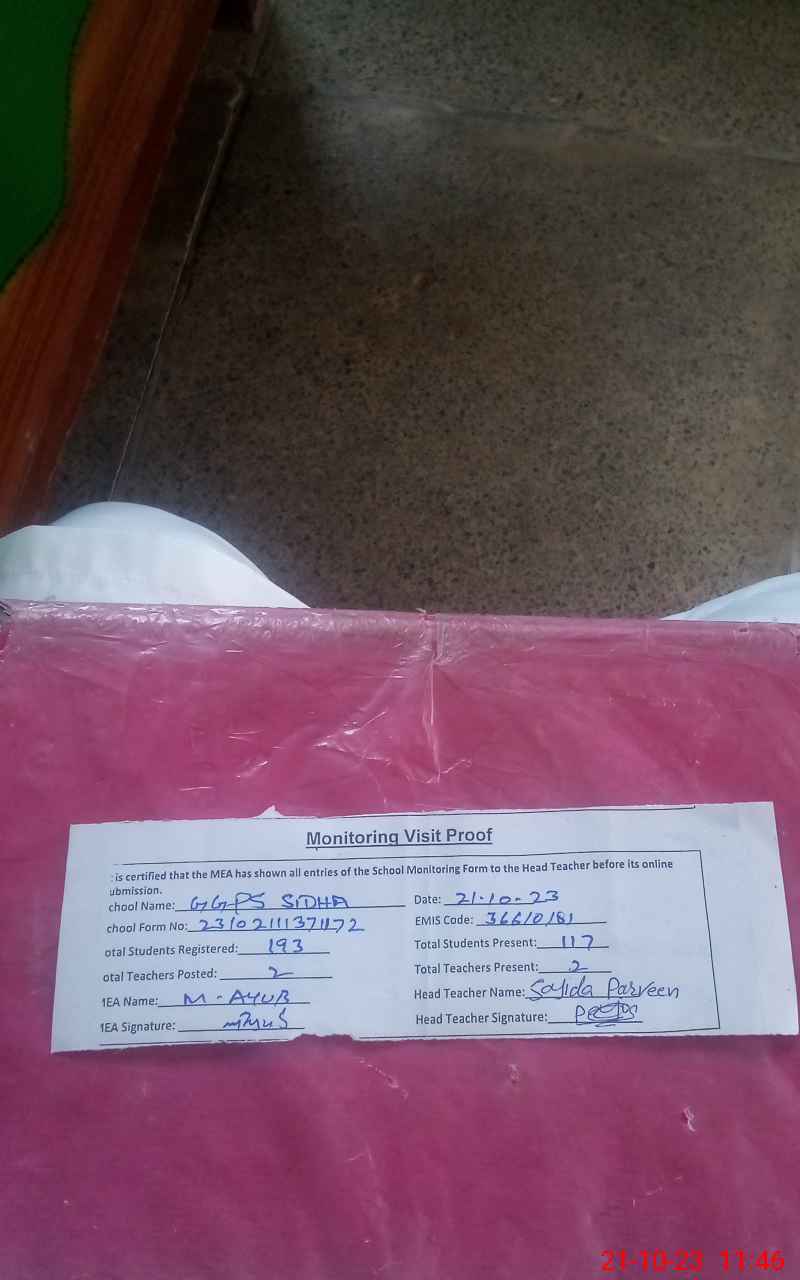 Monitoring Visit Proof
: is certified that the MEA has shown all entries of the School Monitoring Form to the Head Teacher before its online
ubmission.
chool Name: GGPS SIDHA Date: 21-10-23
chool Form No: 23102111371172 EMIS Code: 36610181
otal Students Registered: 193 Total Students Present: 117
otal Teachers Posted: 2 Total Teachers Present: 2
1EA Name: M-AYUB Head Teacher Name: Sajida Parveen
1EA Signature: Head Teacher Signature:
21-10-23 11:46